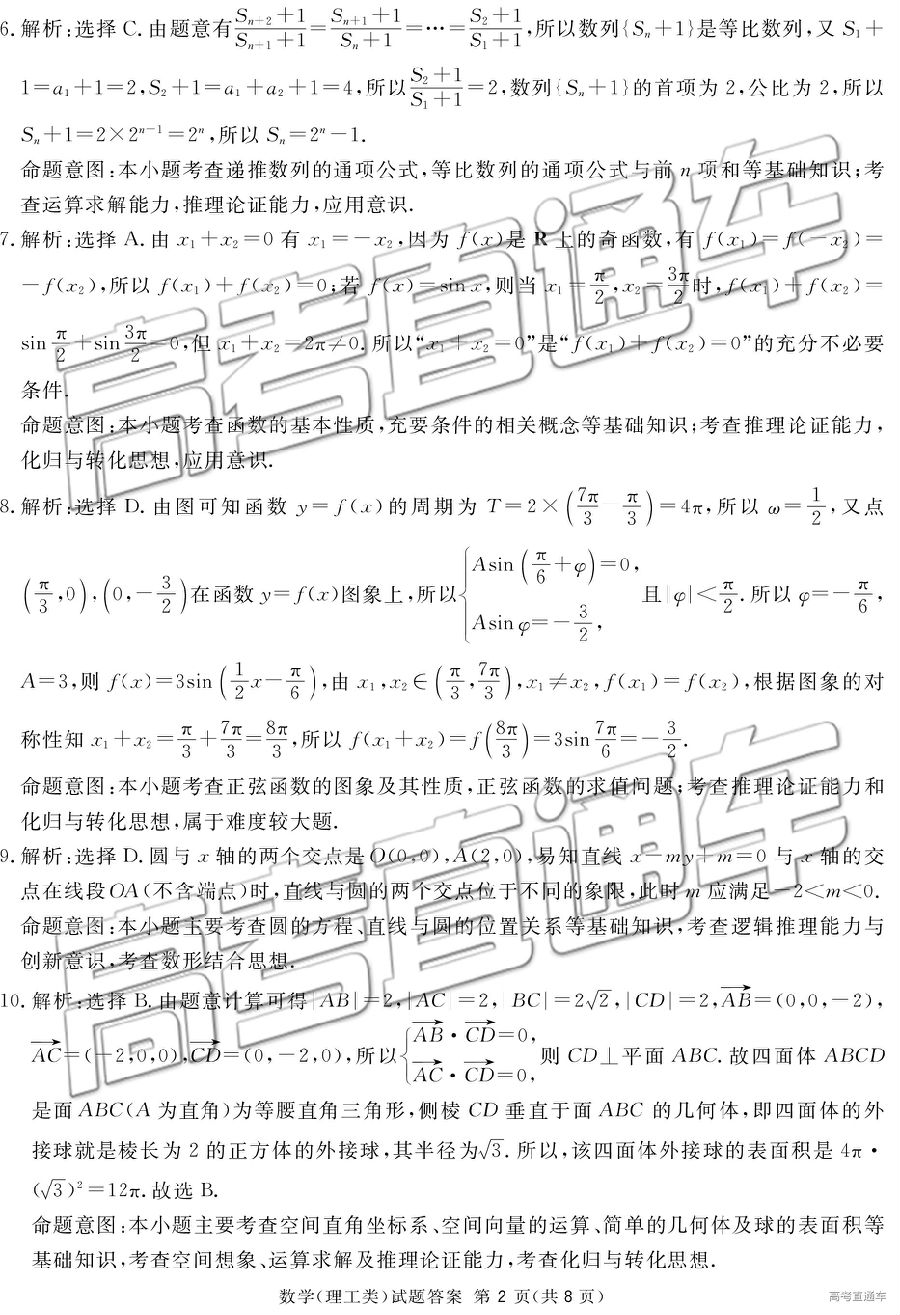 6.解析:选择 C.由题意有(Sₙ₊₂+1)/(Sₙ₊₁+1)=(Sₙ₊₁+1)/(Sₙ+1)=…=(S₂+1)/(S₁+1),所以数列{Sₙ+1}是等比数列,又 S₁+
1=a₁+1=2,S₂+1=a₁+a₂+1=4,所以(S₂+1)/(S₁+1)=2,数列{Sₙ+1}的首项为 2,公比为 2,所以
Sₙ+1=2×2ⁿ⁻¹=2ⁿ,所以 Sₙ=2ⁿ-1.
命题意图:本小题考查递推数列的通项公式,等比数列的通项公式与前 n 项和等基础知识;考
查运算求解能力,推理论证能力,应用意识.
7.解析:选择 A.由 x₁+x₂=0 有 x₁=-x₂,因为 f(x)是 R 上的奇函数,有 f(x₁)=f(-x₂)=
-f(x₂),所以 f(x₁)+f(x₂)=0;若 f(x)=sin x,则当 x₁=π/2,x₂=3π/2时,f(x₁)+f(x₂)=
sin π/2+sin 3π/2=0,但 x₁+x₂=2π≠0.所以“x₁+x₂=0”是“f(x₁)+f(x₂)=0”的充分不必要
条件.
命题意图:本小题考查函数的基本性质,充要条件的相关概念等基础知识;考查推理论证能力,
化归与转化思想,应用意识.
8.解析:选择 D.由图可知函数 y=f(x)的周期为 T=2×(7π/3-π/3)=4π,所以 ω=1/2,又点
(π/3,0),(0,-3/2)在函数 y=f(x)图象上,所以{Asin(π/6+φ)=0, Asin φ=-3/2, 且|φ|<π/2.所以 φ=-π/6,
A=3,则 f(x)=3sin(1/2x-π/6),由 x₁,x₂∈(π/3,7π/3),x₁≠x₂,f(x₁)=f(x₂),根据图象的对
称性知 x₁+x₂=π/3+7π/3=8π/3,所以 f(x₁+x₂)=f(8π/3)=3sin 7π/6=-3/2.
命题意图:本小题考查正弦函数的图象及其性质,正弦函数的求值问题;考查推理论证能力和
化归与转化思想,属于难度较大题.
9.解析:选择 D.圆与 x 轴的两个交点是 O(0,0),A(2,0),易知直线 x-my+m=0 与 x 轴的交
点在线段OA(不含端点)时,直线与圆的两个交点位于不同的象限,此时 m 应满足-2<m<0.
命题意图:本小题主要考查圆的方程、直线与圆的位置关系等基础知识,考查逻辑推理能力与
创新意识,考查数形结合思想.
10.解析:选择 B.由题意计算可得|AB|=2,|AC|=2,|BC|=2√2,|CD|=2,AB→=(0,0,-2),
AC→=(-2,0,0),CD→=(0,-2,0),所以{AB→·CD→=0, AC→·CD→=0, 则 CD⊥平面 ABC.故四面体 ABCD
是面 ABC(A 为直角)为等腰直角三角形,侧棱 CD 垂直于面 ABC 的几何体,即四面体的外
接球就是棱长为 2 的正方体的外接球,其半径为√3.所以,该四面体外接球的表面积是 4π·
(√3)²=12π.故选 B.
命题意图:本小题主要考查空间直角坐标系、空间向量的运算、简单的几何体及球的表面积等
基础知识,考查空间想象、运算求解及推理论证能力,考查化归与转化思想.
数学(理工类)试题答案 第 2 页(共 8 页)
高考直通车
高考直通车
高考直通车